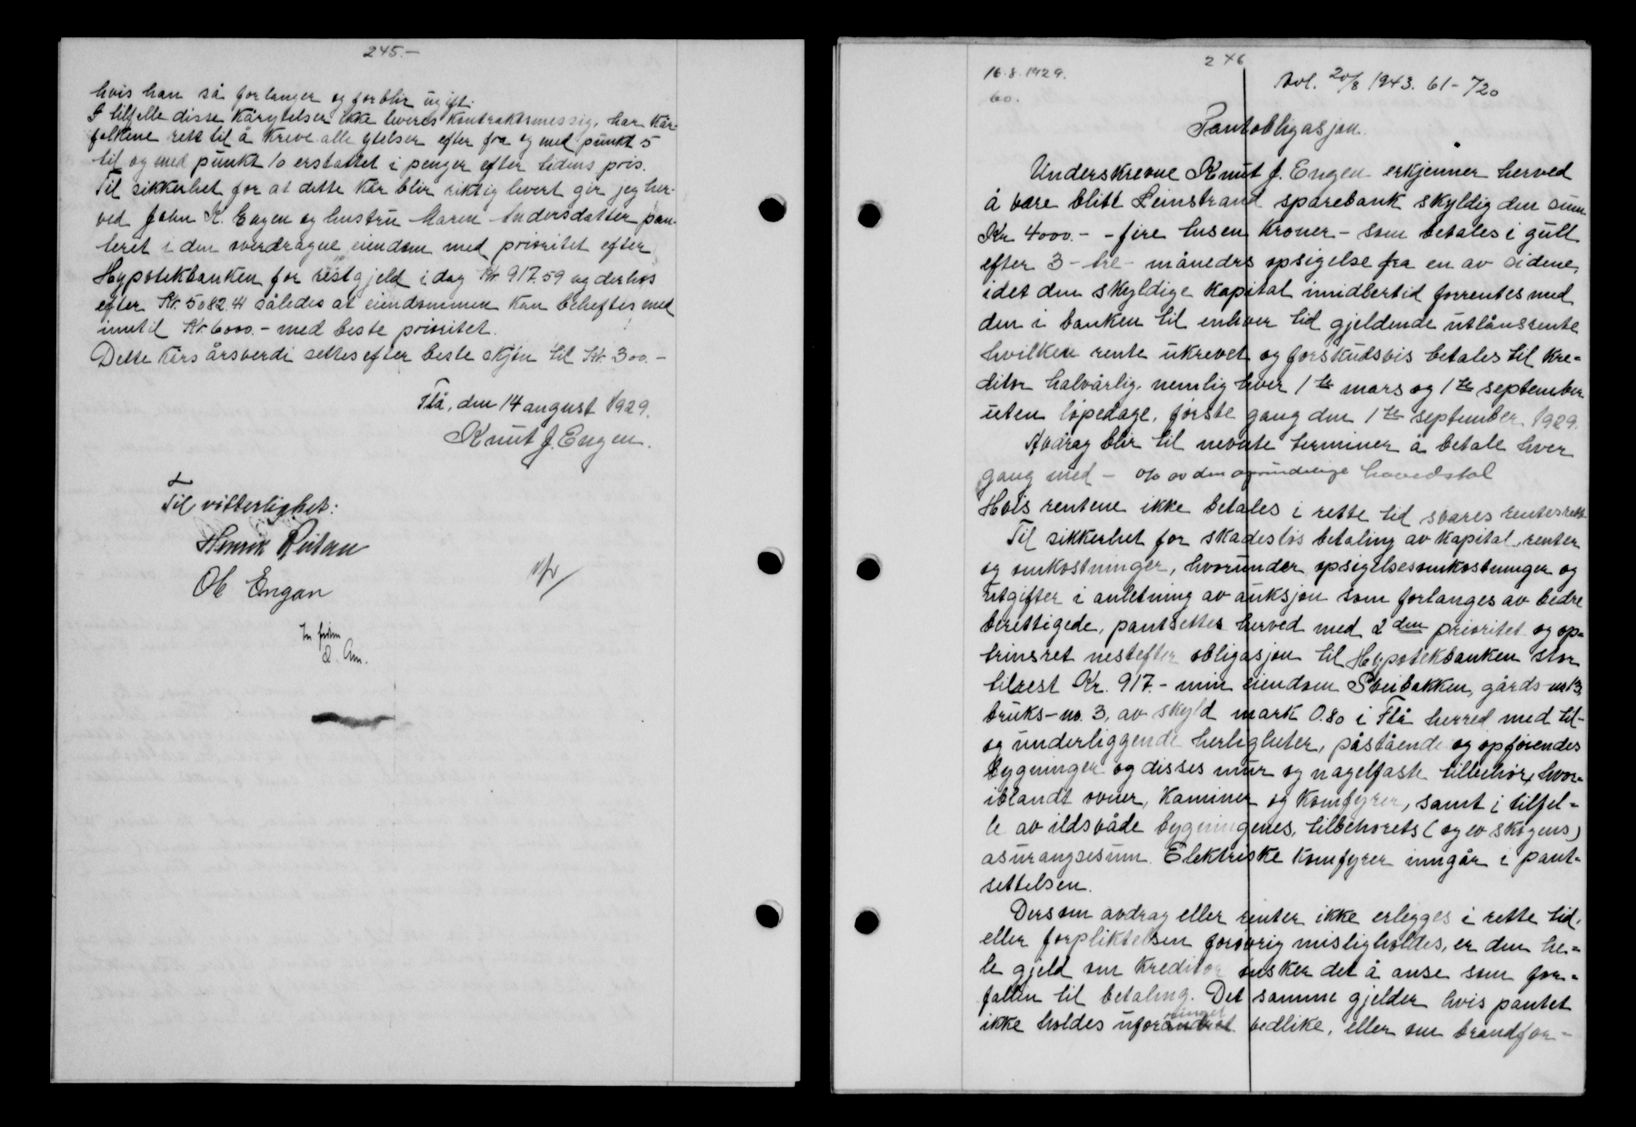 245.-
hvis han så forlanger og forblir ugift.
I tilfelle disse kårytelser ikke leveres kontraktsmessig, har kår-
folkene rett til å kreve alle ytelser efter fra og med punkt 5
til og med punkt 10 erstattet i penger efter tidens pris.
Til sikkerhet for at dette kår blir riktig levert gir jeg her-
ved John K. Engen og hustru Maren Andersdatter pan-
teret i den overdragne eiendom med prioritet efter
Hypotekbanken for restgjeld i dag Kr. 917.59 og derhos
efter Kr. 5082.41 således at eiendommen kan beheftes med
inntil Kr. 6000.- med beste prioritet.
Dette kårs årsverdi settes efter beste skjøn til Kr. 300.-
Flå, den 14 august 1929.
Knut J. Engen.
Til vitterlighet:
Henrik Reitan
Ole Engan
246
16.8.1929.
60.
Avl. 20/8 1943. 61-720
Pantobligasjon.
Underskrevne Knut J. Engen erkjenner herved
å være blitt Leinstrand sparebank skyldig den sum
Kr. 4000.- - fire tusen kroner - som betales i gull
efter 3 - tre - måneders opsigelse fra en av sidene,
idet den skyldige kapital imidlertid forrentes med
den i banken til enhver tid gjeldende utlånsrente
hvilken rente ukrevet og forskudsvis betales til kre-
ditor halvårlig, nemlig hver 1ste mars og 1ste september
uten løpedage, første gang den 1ste september 1929.
Avdrag blir til nevnte terminer å betale hver
gang med - % av den oprindelige hovedstol
Hvis rentene ikke betales i rette tid svares rentesrente
Til sikkerhet for skadesløs betaling av kapital, renter
og omkostninger, hvorunder opsigelsesomkostninger og
utgifter i anledning av auksjon som forlanges av bedre
berettigede, pantsettes herved med 2den prioritet og op-
trinsret nestefter obligasjon til Hypotekbanken stor
tilrest Kr. 917.- min eiendom Sveibakken, gårds-no 13,
bruks-no. 3, av skyld mark 0.80 i Flå herred med til-
og underliggende herligheter, påstående og opførendes
bygninger og disses mur og nagelfaste tilbehør, hvor-
iblandt ovner, kaminer og komfyrer, samt i tilfel-
le av ildsvåde bygningenes, tilbehørets (og ev skogens)
asurangsesum. Elektriske komfyrer inngår i pant-
settelsen.
Dersom avdrag eller renter ikke erlegges i rette tid,
eller forpliktelsen forøvrig misligholdes, er den he-
le gjeld om kreditor ønsker det å anse som for-
fallen til betaling. Det samme gjelder hvis pantet
ikke holdes uforandret vedlike, eller om brandfor-